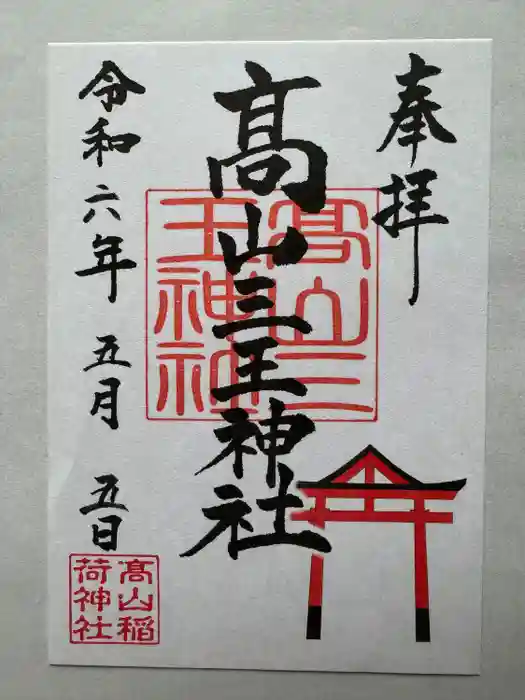 奉拝
髙山三王神社
髙山三
王神社
令和六年 五月 五日
髙山稲
荷神社